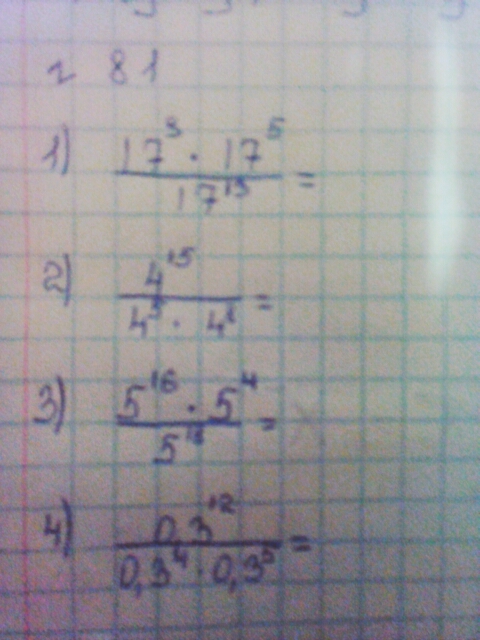 г 81
1) 17^3 · 17^5 / 17^13 =
2) 4^15 / 4^3 · 4 =
3) 5^16 · 5^4 / 5^18 =
4) 0,3^12 / 0,3^4 · 0,3^5 =